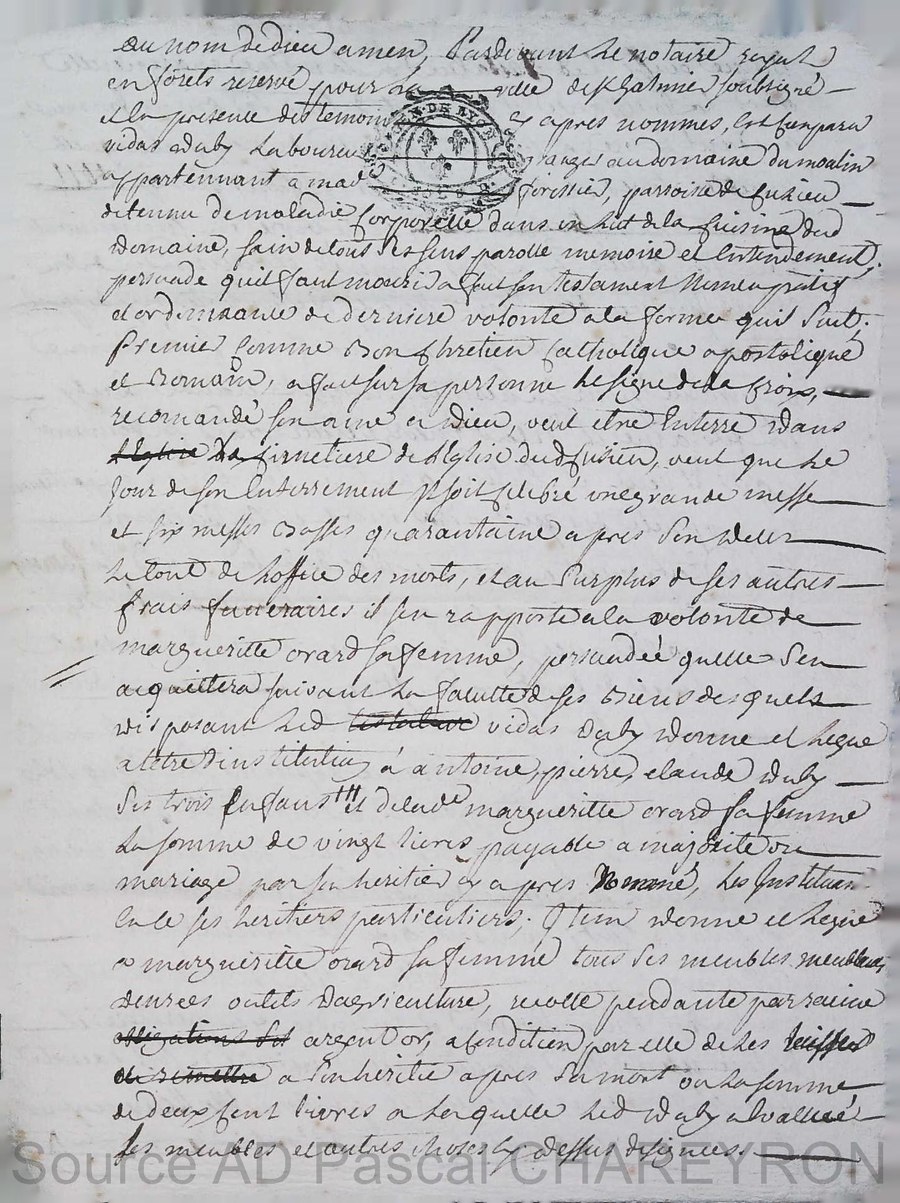 au nom de dieu amen, Pardevant le notaire royal
en forets reservé pour la ville de St Galmier soubsigné
et en presence des temoins cy apres nommés, est comparu
vidas duby laboureur granger au domaine du moulin
appartennant a mad forissier, parroisse de cuzieu
detenu de maladie corporelle dans un lit de la cuisine dud
domaine, sain de tous ses sens parolle memoire et entendement,
persuade quil faut mourir a fait son testament nuncupatif
et ordonnance de derniere volonté a la forme quil suit;
premier comme bon chretien catholique apostolique
et romain, a fait sur sa personne le signe de la croix,
recomandé son ame a dieu, veut etre enterré dans
l'eglise la cimetiere de l'eglise dud cuzieu, veut que le
jour de son enterrement il soit celebré une grande messe
et six messes basses quarantaine apres son deces
le tout de l'office des morts, et au surplus de ses autres
frais funeraires il sen rapporte a la volonté de
margueritte orard sa femme, persuadée quelle s'en
acquittera suivant la faculté de ses biens desquels
disposant led testateur vidas duby donne et legue
a tetre d'institution à antoine, pierre, claude duby
ses trois enfans et de lade margueritte orard sa femme
la somme de vingt livres payable a majorité ou
mariage par son heritier cy apres nommé, les instituan
en ce ses heritiers particuliers; Item donne et legue
a margueritte orard sa femme tous ses meubles meublans,
denrées outils d'agriculture, recolte pendante par racine
obligations argent or, a condition par elle de les laisser
de remettre a son heritier apres sa mort ou la somme
de deux cent livres a laquelle led duby a valué
ses meubles et autres choses cy dessus designées.
GEN. DE LYON
Source AD Pascal CHAREYRON